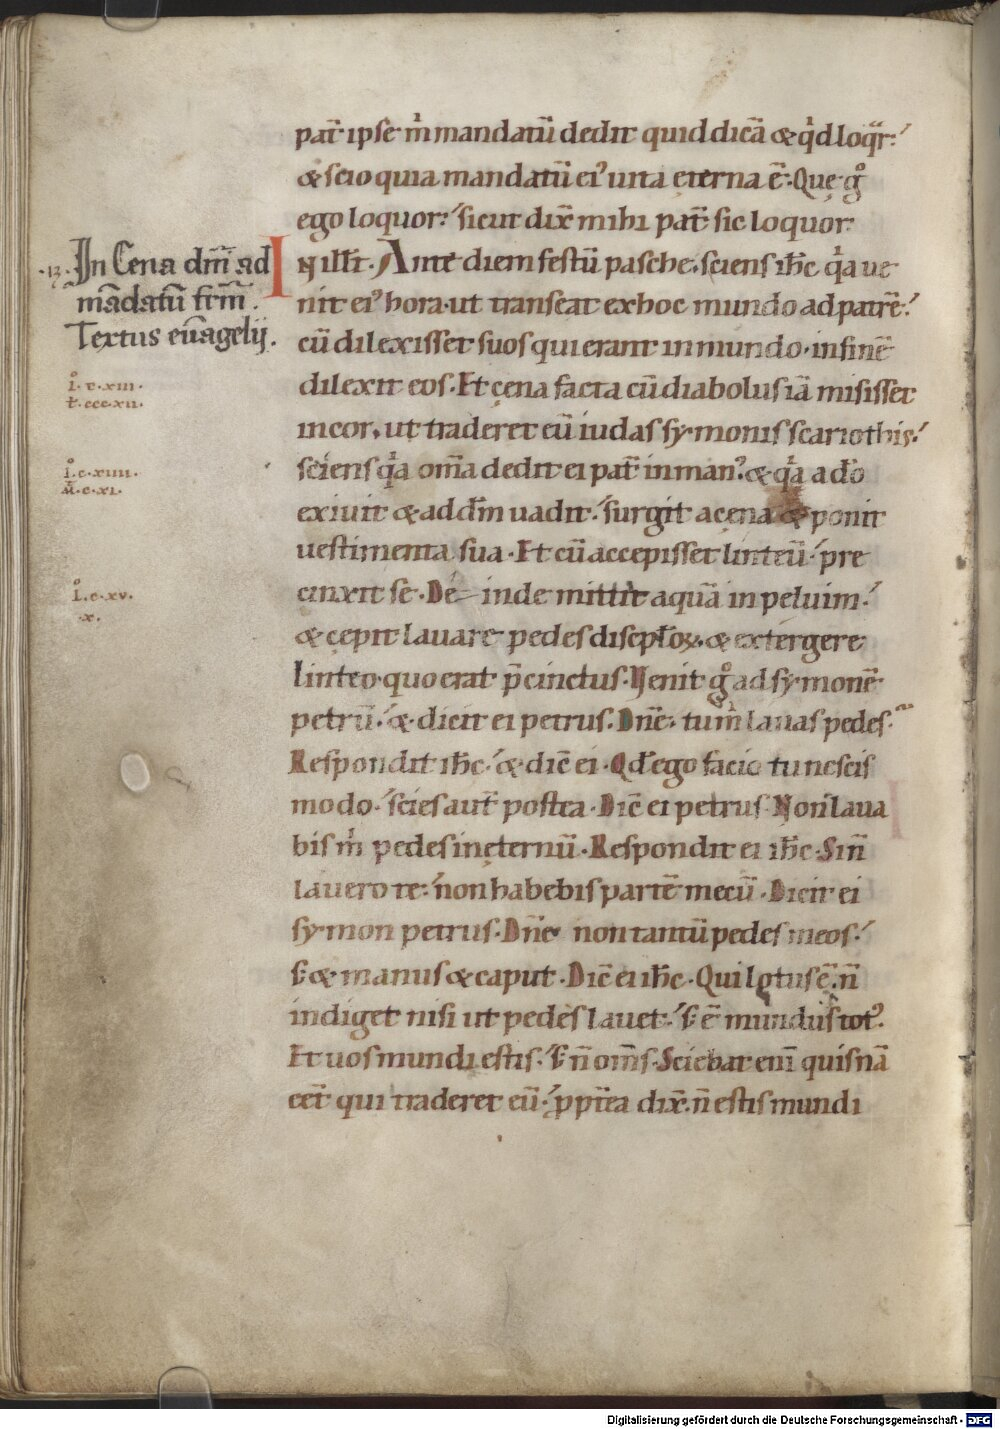 pat̄ ipse m̊ mandatū dedit quid dicā & qd̊ loqr̄:
& scio quia mandatū ei᾽ uita ęterna ē:· Quę g̊
ego loquor:᾽ sicut dix̄ mihi pat̄ sic loquor·
·13· In Cena dn̄i ad
mādatū frm̄.
Textus euāgelij.
IN ill̄t· Ante diem festū pasche· sciens ih̄c q̊a ue
nit ei᾽ hora· ut transeat ex hoc mundo ad patrē:᾽
cū dilexisset suos qui erant in mundo· in finē
i̊· c· xiii·
t· ccc· xii·
dilexit eos· Et cęna facta cū diabolus iā misisset
in cor, ut traderet eū iudas symonis scariothis:᾽
i̊· c· xiiii·
m̊· c· xi·
sciens q̊a om̄a dedit ei pat̄ in man᾽· & q̊a a do̅
exiuit & ad dm̄ uadit:᾽ surgit a cęna & ponit
uestimenta sua· Et cū accepisset linteū:᾽ pre
i̊· c· xv·
·x·
cinxit se· Dé inde mittit aquā in peluim:᾽
& cępit lauare pedes discipl̄oꝝ· & extergere
linteo· quo erat p̄cinctus· Uenit g̊ ad symonē
petrū:᾽ & dicit ei petrus· Dn̄e· tu m̊ lauas pedes·
Respondit ih̄c:᾽ & dic̄ ei· Qd̄ ego facio tu nescis
modo:᾽ scies aut̄ postea· Dic̄ ei petrus· Non laua
bis m̊ pedes in ęternū· Respondit ei ih̄c· Si n̄
lauero te:᾽ non habebis partē mecū· Dicit ei
symon petrus· Dn̄e· non tantū pedes meos:᾽
s; & manus & caput· Dic̄ ei ih̄c· Qui lotus ē· n̄
indiget nisi ut pedes lauet:᾽ s; ē mundus tot᾽·
Et uos mundi estis:᾽ s; n̄ om̄s· Sciebat eni̅ quisnā
eēt qui traderet eū:᾽ ꝓpt̄ea dix̄· n̄ estis mundi
Digitalisierung gefördert durch die Deutsche Forschungsgemeinschaft · DFG